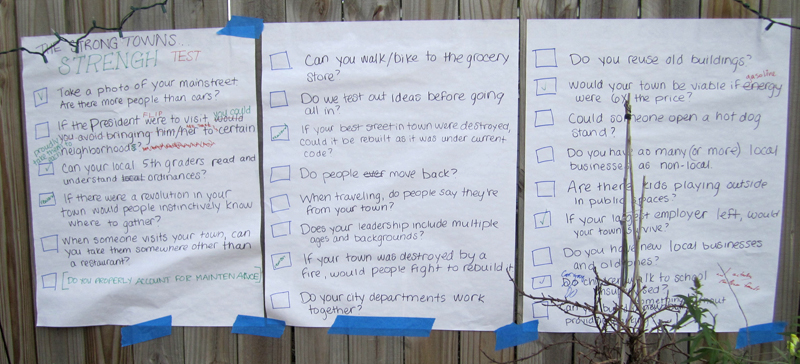 THE STRONG TOWNS...
STRENGH TEST
Take a photo of your mainstreet
Are there more people than cars?
FLIP
If the President were to visit, would you could
you avoid bringing him/her to certain
proudly
neighborhoods?
Can your local 5th graders read and
understand local ordinances?
If there were a revolution in your
town would people instinctively know
where to gather?
When someone visits your town, can
you take them somewhere other than
a restaurant?
[DO YOU PROPERLY ACCOUNT FOR MAINTENANCE]
Can you walk/bike to the grocery
store?
Do we test out ideas before going
all in?
If your best street in town were destroyed,
could it be rebuilt as it was under current
code?
Do people ever move back?
When traveling, do people say they're
from your town?
Does your leadership include multiple
ages and backgrounds?
If your town was destroyed by a
fire, would people fight to rebuild it
Do your city departments work
together?
Do you reuse old buildings?
gasoline
Would your town be viable if energy
were 6x the price?
Could someone open a hot dog
stand?
Do you have as many (or more) local
businesses as non-local.
Are there kids playing outside
in public spaces?
If your largest employer left, would
your town survive?
Do you have new local businesses
and old ones?
Can your
Do children walk to school
unsupervised?